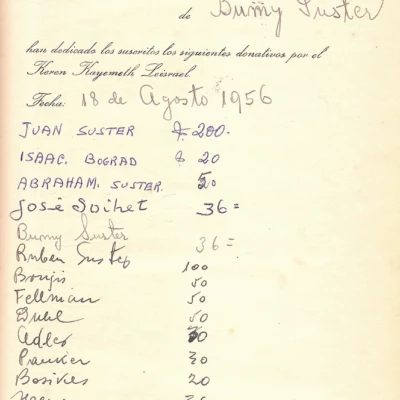 de Bumy Suster
han dedicado los suscritos los siguientes donativos por el
Keren Kayemeth Leisrael.
Fecha: 18 de Agosto 1956
JUAN SUSTER $ 200.
ISAAC. BOGRAD $ 20
ABRAHAM. SUSTER. 50
José Soihet 36=
Bumy Suster 36=
Ruben Suster 100
50
Fellman 50
50
Adler
Pauker 20
20